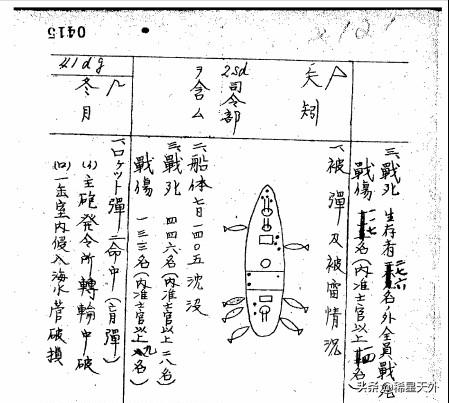 0415
三、戰死 生存者二七六名ノ外全員戰死
戰傷 一一七名(内准士官以上 名)
矢矧
一、被彈及被雷情況
2sd司令部
ヲ含ム
二、船体七日一四〇五沈没
三、戰死 四四六名(内准士官以上二八名)
戰傷 一三三名(内准士官以上九名)
41dg
冬月
一、ロケット彈二命中(盲彈)
(イ)主砲発令所轉輪中破
(ロ)一缶室内侵入海水管破損
头条@稀星天外